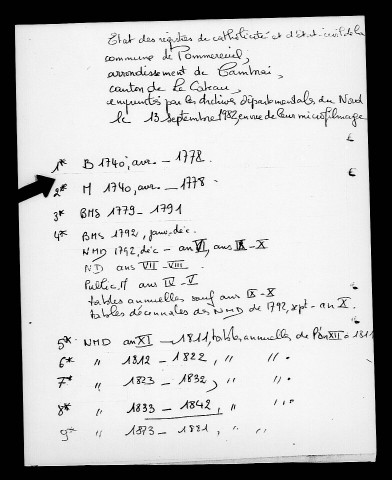 Etat des registres de catholicité et d'Etat-civil de la
commune de Pommereuil,
arrondissement de Cambrai,
canton de Le Cateau,
empruntés par les Archives départementales du Nord
le 13 septembre 1982 en vue de leur microfilmage
1* B 1740, avr. — 1778.
2* M 1740, avr. — 1778
3* BMS 1779 — 1791
4* BMS 1792, janv.-déc.
NMD 1792, déc — an VI, ans IX - X
ND ans VII - VIII.
Public. M ans IV - V
tables annuelles sauf ans IX - X
tables décennales des NMD de 1792, sept - an X.
5* NMD an XI — 1811, tables annuelles de l'an XII à 1811
6* " 1812 — 1822, " "
7* " 1823 — 1832, " "
8* " 1833 — 1842, " "
9* " 1873 — 1881, " "